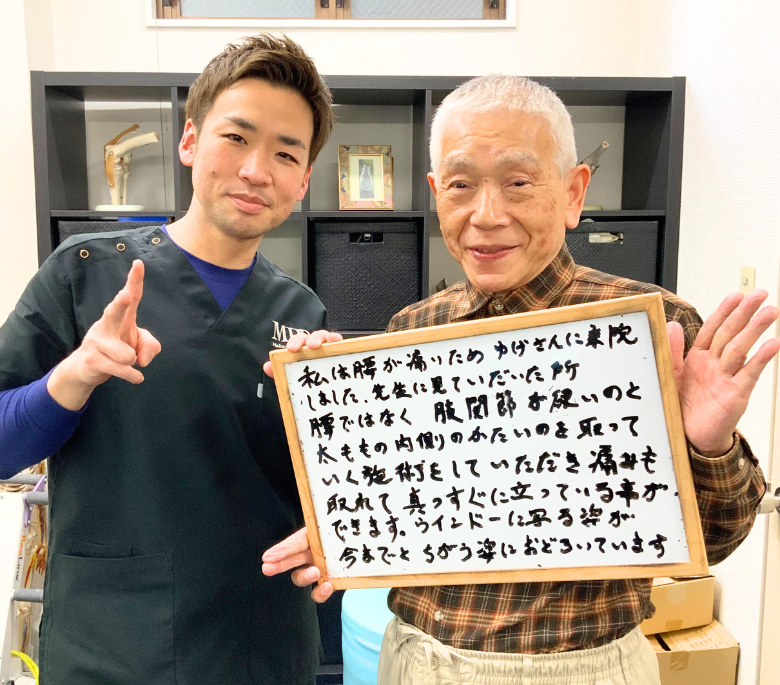 MED
私は腰が痛いため ゆげさんに来院
しました。先生に見ていだいた所
腰ではなく 股関節が硬いのと
太ももの内側のかたいのを取って
いく施術をしていただき痛みも
取れて真っすぐに立っている事が
できます。ウインドーに写る姿が
今までとちがう姿におどろいています